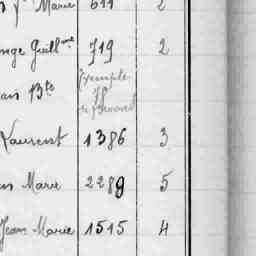 Marie 611 2
Guill^me 719 2
B^te Exemple
Laurent 1386 3
Marie 2289 5
Jean Marie 1515 4